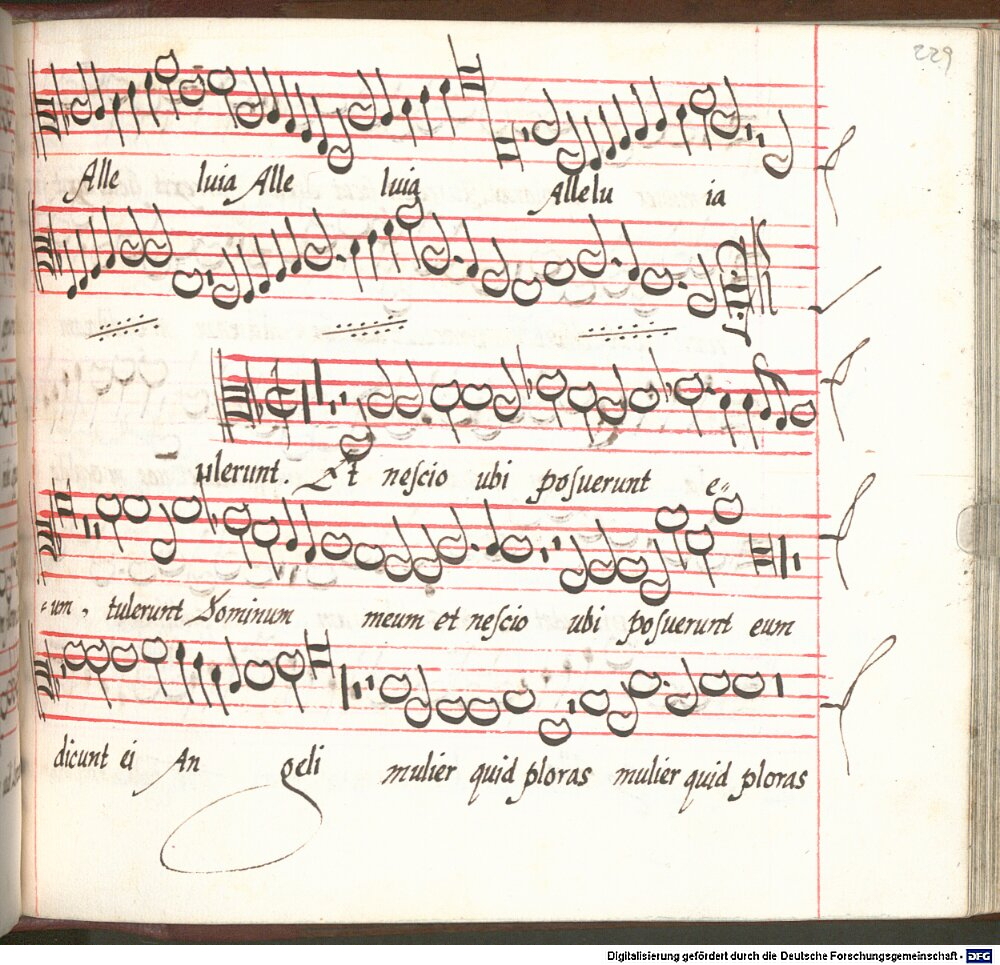 229
Alle luia Alle luia Allelu ia
ulerunt. Et neſcio ubi poſuerunt e-
-um, tulerunt Dominum meum et neſcio ubi poſuerunt eum
dicunt ei An geli mulier quid ploras mulier quid ploras
Digitalisierung gefördert durch die Deutsche Forschungsgemeinschaft - DFG